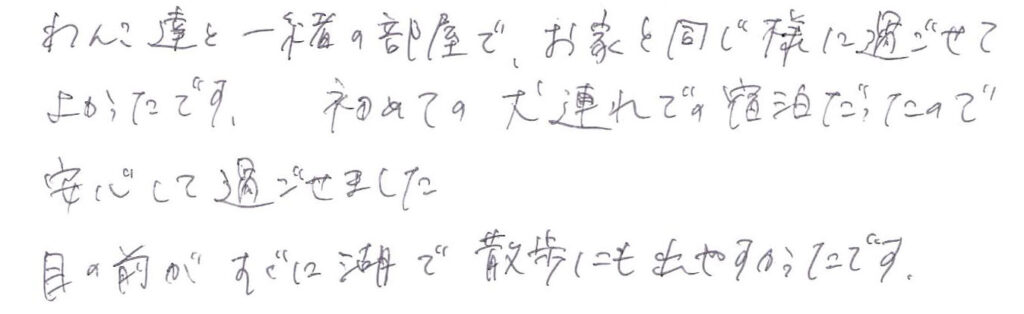 わんこ達と一緒の部屋で、お家と同じ様に過ごせて
よかったです。 初めての犬連れでの宿泊だったので
安心して過ごせました
目の前がすぐに湖で散歩にも出やすかったです。